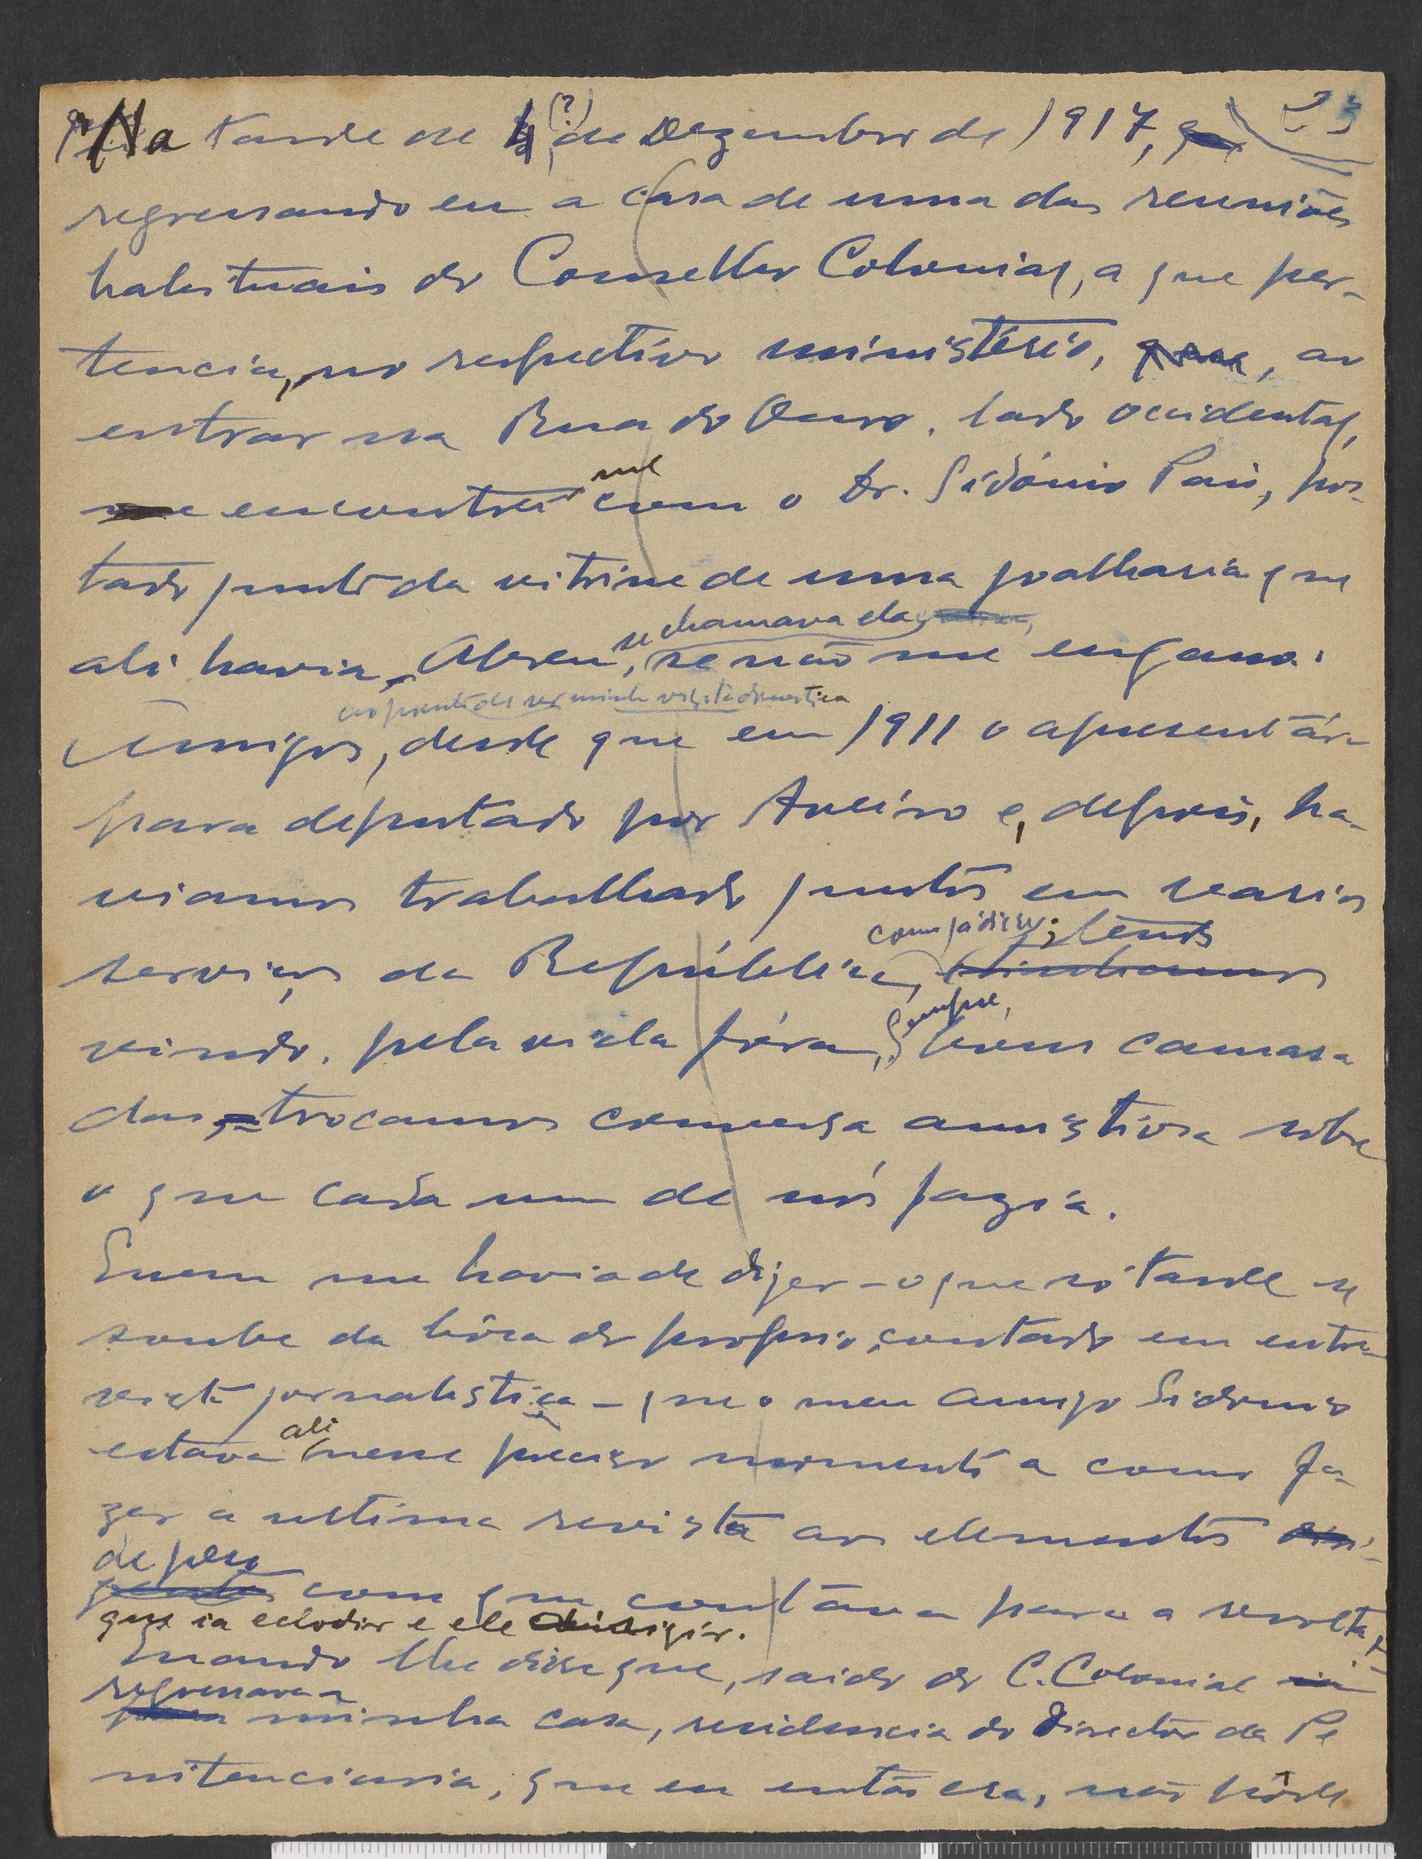 23
Na tarde de 4 (?) de Dezembro de 1917,
regressando eu a casa de uma das reuniões
habituais do Conselho Colonial, a que per-
tencia, no respectivo ministério, ao
entrar na Rua do Ouro, lado occidental,
encontrei-me com o Dr. Sidónio Pais, pos-
tado junto da vitrine de uma joalharia que
ali havia, Abreu, se chamava ela, se não me engano.
Amigos, desde que em 1911 o apresentára
ao ponto de ser minha visita domestica
para deputado por Aveiro e, depois, ha-
viamos trabalhado juntos em varios
serviços da República, como já disse; tendo
vindo, pela vida fóra, sempre, bons camara
das, trocamos conversa amistosa sobre
o que cada um de nós fazia.
Quem me havia de dizer - o que só tarde se
soube da bôca do proprio, contado em entre-
vista jornalistica - que o meu amigo Sidonio
estava ali nesse preciso momento a como fa-
zer a ultima revista aos elementos
de peso com que contava para a revolta
que ia eclodir e ele dirigir.
Quando lhe disse que, saido do C. Colonial
regressava a minha casa, residencia do Director da Pe
nitenciaria, que eu então era, não pôde